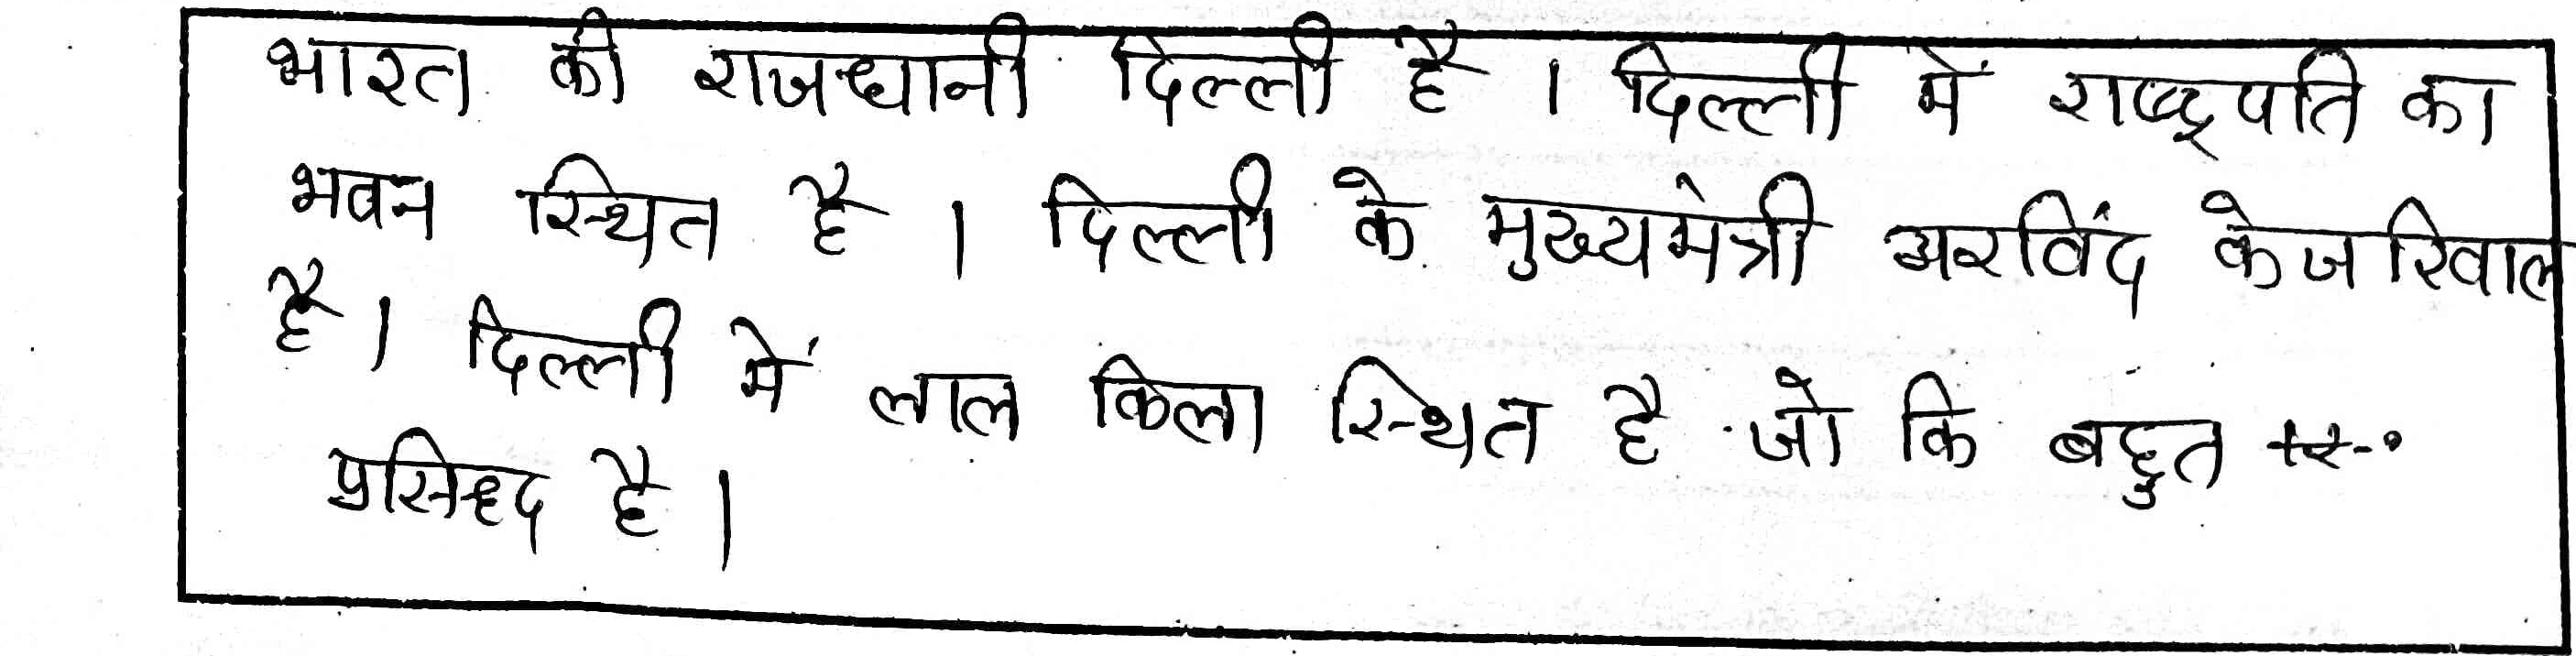 भारत की राजधानी दिल्ली है । दिल्ली में राष्ट्रपति का
भवन स्थित है । दिल्ली के मुख्यमंत्री अरविंद केजरिवाल
है । दिल्ली में लाल किला स्थित है जो कि बहुत
प्रसिध्द है ।